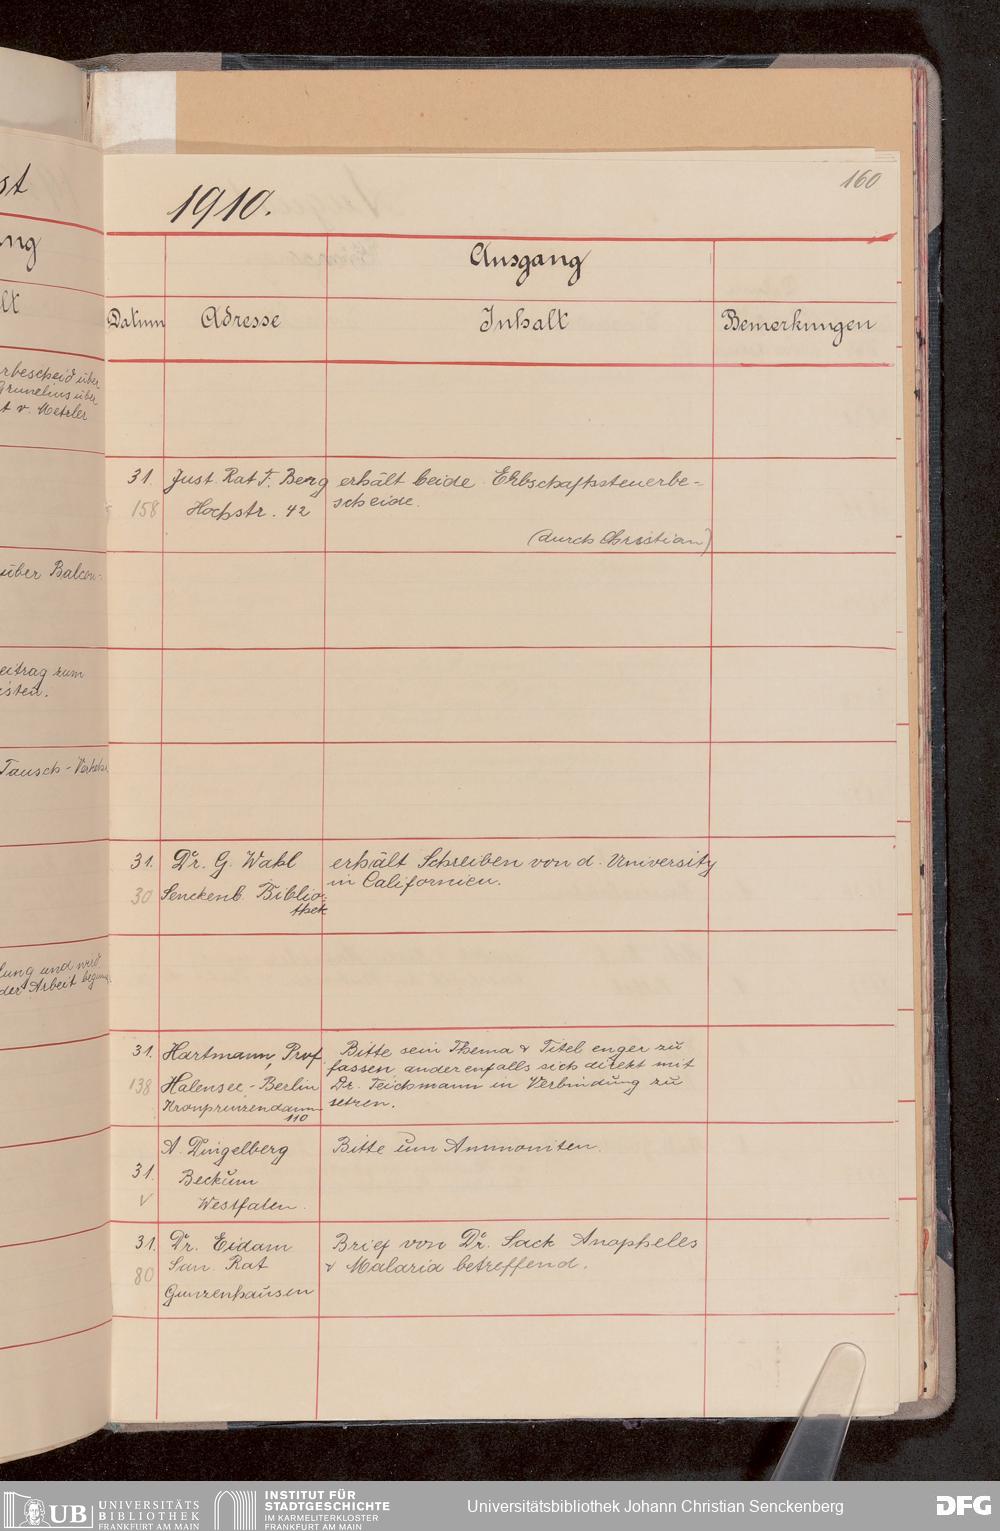 st
160
1910.
ng
Ausgang
lt
Datum Adresse Inhalt Bemerkungen
rbescheid über
Grunelius über
t v. Metzler
31. Just. Rat F. Berg erhält beide Erbschaftssteuerbe=
158 Hochstr. 42 scheide.
(durch Christian)
über Balcon-
eitrag zum
isten.
Tausch-Verkehr
31. Dr. G. Wahl erhält Schreiben von d. University
30 Senckenb. Biblio= in Californien.
thek
lung und wird
der Arbeit
31. Hartmann, Prof. Bitte sein Thema & Titel enger zu
fassen, anderenfalls sich direkt mit
138 Halensee-Berlin Dr. Teichmann in Verbindung zu
Kronprinzendamm setzen.
110
A. Dingelberg Bitte um Ammoniten.
31. Beckum
v Westfalen.
31. Dr. Eidam Brief von Dr. Sack Anopheles
80 San. Rat & Malaria betreffend.
Gunzenhausen
UB UNIVERSITÄTS
BIBLIOTHEK
FRANKFURT AM MAIN
INSTITUT FÜR
STADTGESCHICHTE
IM KARMELITERKLOSTER
FRANKFURT AM MAIN
Universitätsbibliothek Johann Christian Senckenberg
DFG